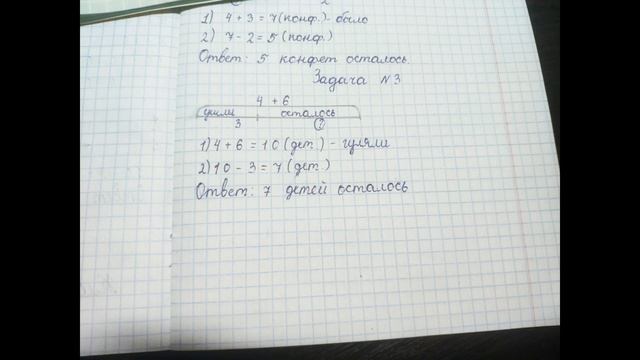 2
1) 4 + 3 = 7 (конф.) - было
2) 7 - 2 = 5 (конф.)
Ответ: 5 конфет осталось.
Задача №3
4 + 6
ушли осталось
3 ?
1) 4 + 6 = 10 (дет.) - гуляли
2) 10 - 3 = 7 (дет.)
Ответ: 7 детей осталось